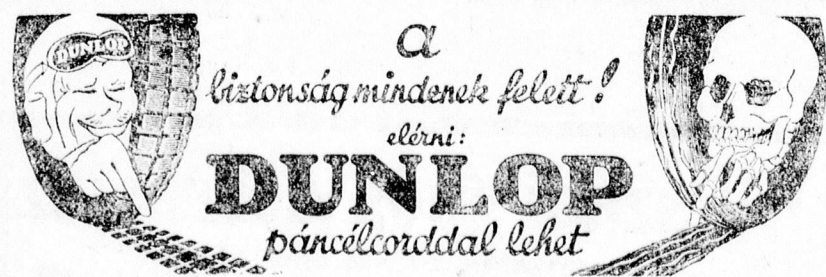 DUNLOP
a
biztonság mindenek felett!
elérni:
DUNLOP
páncélcorddal lehet